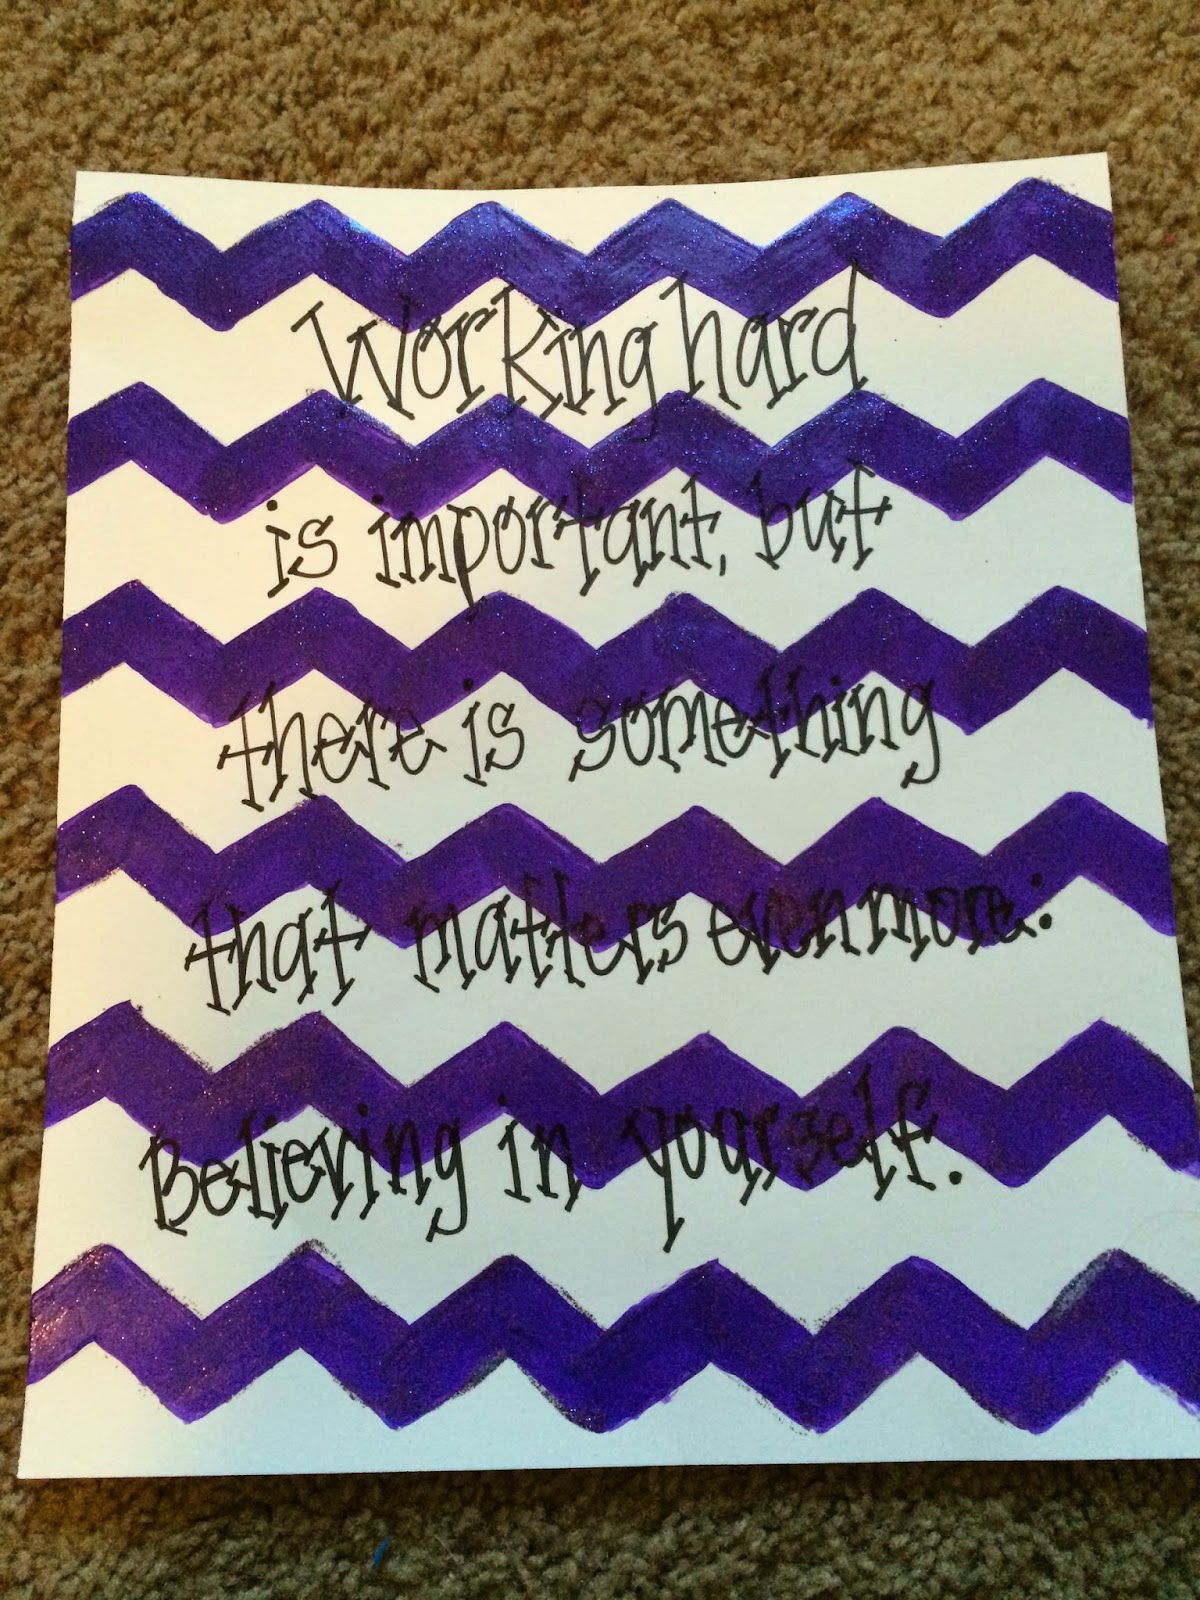 Working hard
is important, but
there is something
that matters even more:
Believing in yourself.